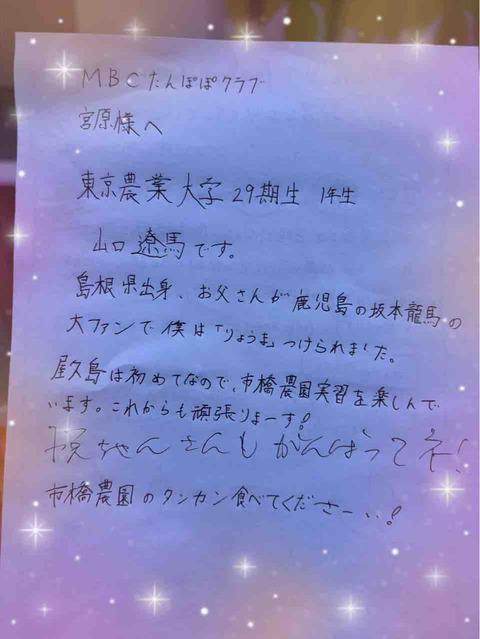 MBCたんぽぽクラブ
宮原様へ
東京農業大学29期生 1年生
山口遼馬です。
島根県出身、お父さんが鹿児島の坂本龍馬の
大ファンで僕は「りょうま」つけられました。
屋久島は初めてなので、市橋農園実習を楽しんで
います。これからも頑張りまーす!
悦ちゃんさんもがんばってネ!
市橋農園のタンカン食べてくださーい!